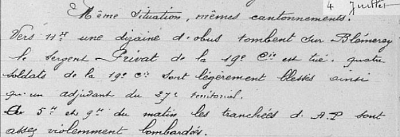 4 Juillet
Même situation, mêmes cantonnements.
Vers 11h une dizaine d'obus tombent sur Blémerey
le Sergent Privat de la 19e Cie est tué. quatre
soldats de la 19e Cie sont légèrement blessés ainsi
qu'un adjudant du 27e territorial.
à 5h et 9h du matin les tranchées d'A.P sont
assez violemment bombardées.